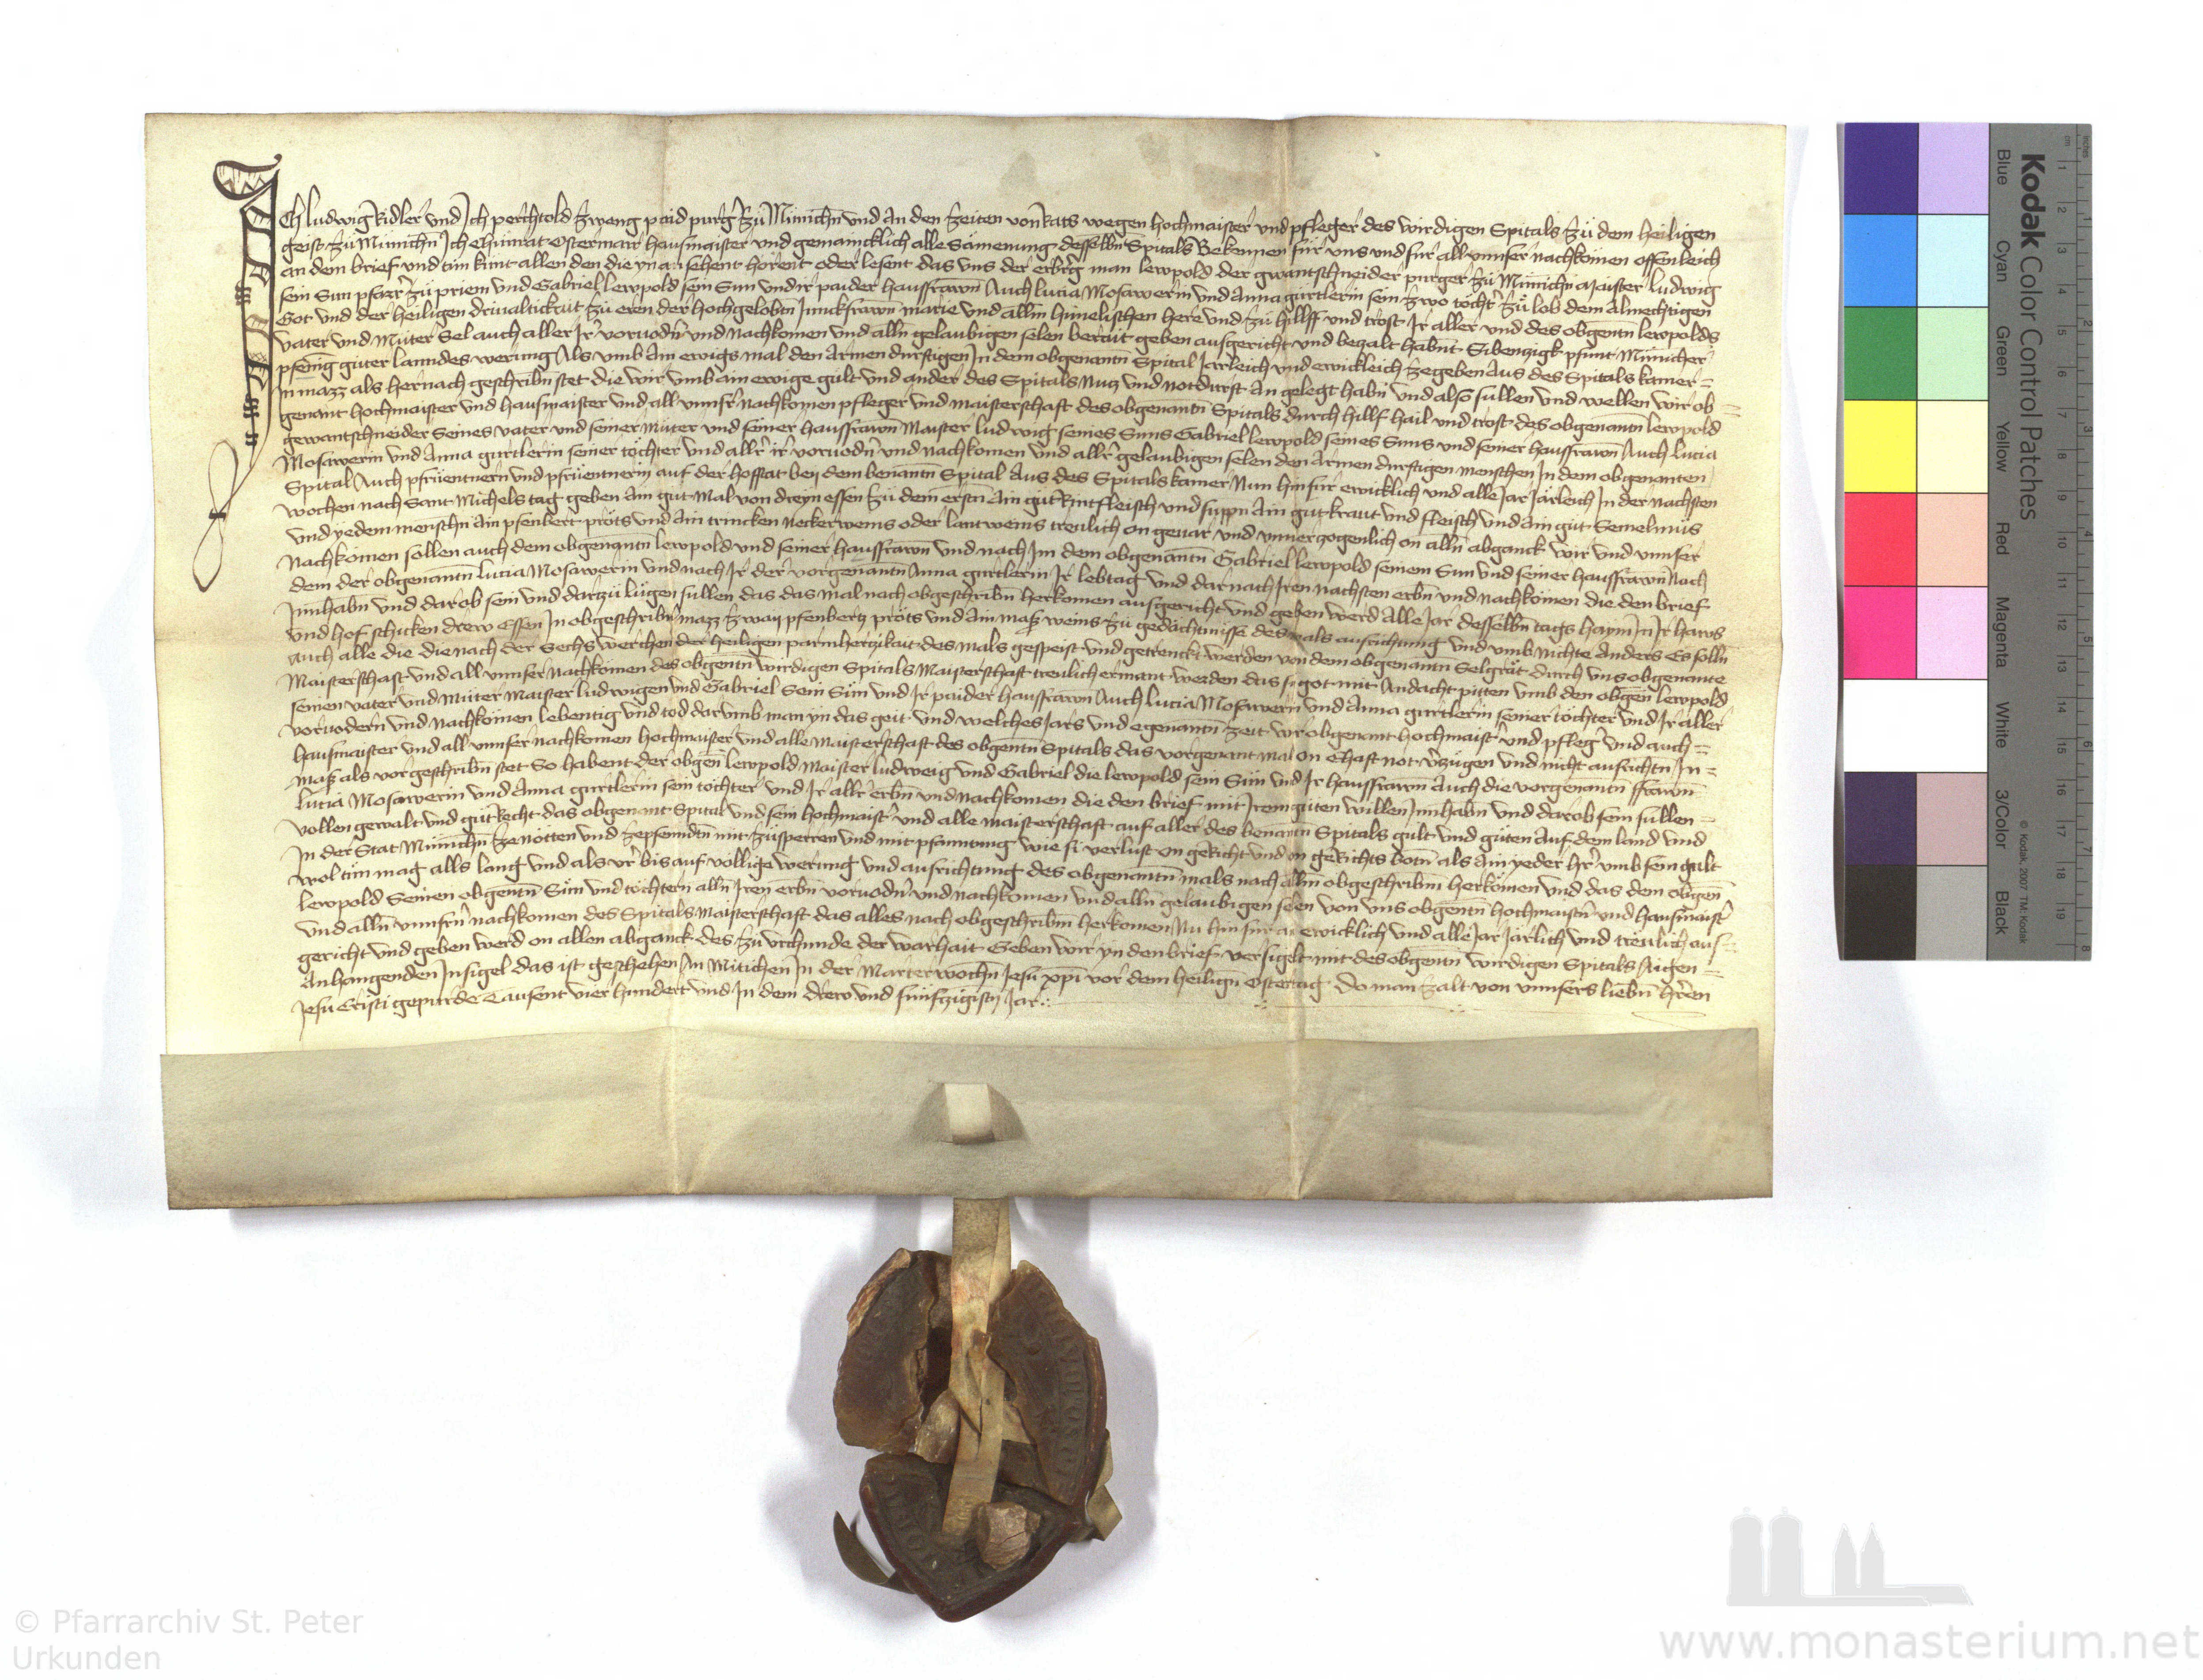 Ich ludwig Ridler und Ich perchtold Zweng paid purg̃ zu Münichn̄ und an den zeiten von Rats wegen hochmaister und pfleger des wirdigen Spitals zu dem heiligen
geist zu Münichn̄ Ich Chunrat Ostermair hausmaister und gemaincklich alle Samenung desselbn̄ Spitals Bekennen für uns und für all unnser nachkomen offenleich
an dem brief und tün kunt allen den die yn an sehent hörent oder lesent das uns der erbrg̃ man lewpold der gwantschneider purger zu Münichn̄ Maister ludwig
sein Sun pfarr̃ zu priem und Gabriel lewpold sein Sun und ir paider hausfrawn̄ Auch lucia Mosawerin und Anna gürtlerin sein zwo töcht̃ zu lob dem Almechtigen
Got und der heiligen drivaltickait zu eren der hochgelobtn̄ Junckfrawn̄ marie und allm̄ himelischen here und zu hillff und trost Ir aller und des obgentn̄ lewpolds
vater und Müter Sel auch aller Ir̃ vorvodn̄ und nachkomen und alln̄ gelaubigen selen berait geben ausgericht und bezalt habn̄t Sibenzigk pfunt Münicher
pfenig güter lanndes werung Als umb Ain ewigs mal den Armen durftigen In dem obgenantn̄ Spital Järleich und ewickleich zegeben Aus des Spitals kamer
In mazz als hernach geschribn̄ stet die wir umb ain ewige gült und ander des Spitals Nutz und notdurft An gelegt habn̄ und also sullen und wellen wir ob=
genant hochmaister und hausmaister und all unnser̃ nachkomen pfleger und maisterschaft des obgenantn̄ Spitals durch hillf hail und trost des obgenantn̄ lewpold
gewantschneider Seines vater und seiner Müter und seiner hausfrawn̄ Maister ludwig seines Suns Gabriel lewpold seines Suns und seiner hausfrawn̄ Auch lucia
Mosawerin und Anna gürtlerin seiner töchter und allr̃ ir̃ vorvodn̄ und nachkomen und allr̃ gelaubigen selen den Armen durftigen menschen In dem obgenanten
Spital Auch pfrüentnern und pfrüentnerin auf der hofstat bey dem benantn̄ Spital Aus des Spitals kamer Nun hinfür ewicklich und alle Jar Järleich In der nachsten
wochen nach Sant Michels tag geben Ain gut Mal von dreyn essen zu dem erstn̄ Ain gut Rintfleisch und suppn Ain gut kraut und fleisch und ain gut Semelmüs
und yedem menschn̄ Ain pfenbert pröts und Ain trincken neckerweins oder lantweins treulich on gevar und unverzogenlich on alln̄ abganck wir und unnser
Nachkomen sollen auch dem obgenantn̄ lewpold und seiner hausfrawn̄ und nach im dem obgenantn̄ Gabriel lewpold seinem Sun und seiner hausfrawn̄ Nach
dem der obgenantn̄ lucia Mosawerin und nach Ir der vorgenantn̄ Anna gürtlerin Ir lebtag und darnach Iren nachsten erbn̄ und nachkomen die den brief
Innhabn̄ und darob sein und darzu lügen sullen das das mal nach obgeschribn̄ herkomen ausgericht und geben werd Alle Jar desselbn̄ tags haym In Ir haws
und hof schicken drew Essen In obgeschribn̄ mazz zway pfenbert pröts und Ain maß weins zu gedächtnisse des mals ausrichtung und umb nichte anders Es solln̄
auch alle die die nach der Sechs werchen der heiligen parmhertzikait des mals gespeist und getrenckt werden von dem obgenantn̄ Selgrät durch uns obgenante
Maisterschaft und all unnser nachkomen des obgentn̄ wirdigen Spitals Maisterschaft treulich ermant werden das si got mit Andacht pitten umb den obgen̄ lewpold
seinen vater und Müter Maister ludwigen und Gabriel Sein Sün und Ir paider hausfrawn̄ Auch lucia Mosawerin und Anna gürtlerin seiner töchter und Ir aller
vorvodern und nachkomen lebentig und tod darumb man yn das geit und welches Jars und egenantn̄ zeit wir obgenant hochmaist̃ und pfleg̃ und auch=
hausmaister und all unnser nachkomen hochmaister und alle Maisterschaft des obgentn̄ Spitals das vorgenant mal on Ehaft not v̄zügen und nicht ausrichtn̄ In=
Maß als vorgeschribn̄ stet So habent der obgen̄ lewpold Maister ludweig und Gabriel die lewpold sein Sün und Ir hausfrawn̄ Auch die vorgenantn̄ frawn̄
Lucia Mosawerin und Anna gürtlerin sein töchter und Ir allr̃ erbn̄ und nachkomen die den brief mit Irem güten willen Innhabn̄ und darob sein sullen=
vollen gewalt und güt Recht das obgenant Spital und sein hochmaist̃ und alle maisterschaft auf aller des benantn̄ Spitals gült und güten Auf dem land und
In der Stat Münichn̄ ze nötten und ze pfenndtn̄ mit züsperren und mit pfanntung wie si verlust on gericht und on gerichts botn̄ als Ain yeder hr̃ umb sein gült
wol tün mag alls lang und als vr̃ bis auf völlige werung und ausrichtung des obgenantn̄ mals nach allm̄ obgeschribm̄ herkomen und das dem obgen̄
lewpold Seinen obgentn̄ Sün und töchtern alln̄ Iren erbn̄ vorvodn̄ und nachkomen und alln̄ gelaubigen selen von uns obgentn̄ hochmaistn̄ und hausmaist̃
und alln̄ unnsrn̄ nachkomen des Spitals maisterschaft das alles nach obgeschribm̄ herkomen Nu hin für an ewicklich und alle Jar Järlich und treulich aus=
gericht und geben werd on allen abganck des zu urchunde der warhait Geben wir yn den brief versigelt mit des obgentn̄ wirdigen Spitals Aigen=
Anhangenden Insigel das ist geschehen An Mitichen In der Marterwochn̄ Jesu xp̄i vor dem heilign̄ Ostertag Do man zalt von unnsers liebn̄ hr̃en
Jesu Cristi gepurde Tausent vier hundert und In dem drew und fünfzigistn̄ Jar
Kodak Color Control Patches
Blue
Cyan
Green
Yellow
Red
Magenta
White
3/Color
Black
© Kodak, 2007 TM: Kodak
© Pfarrarchiv St. Peter
Urkunden
www.monasterium.net